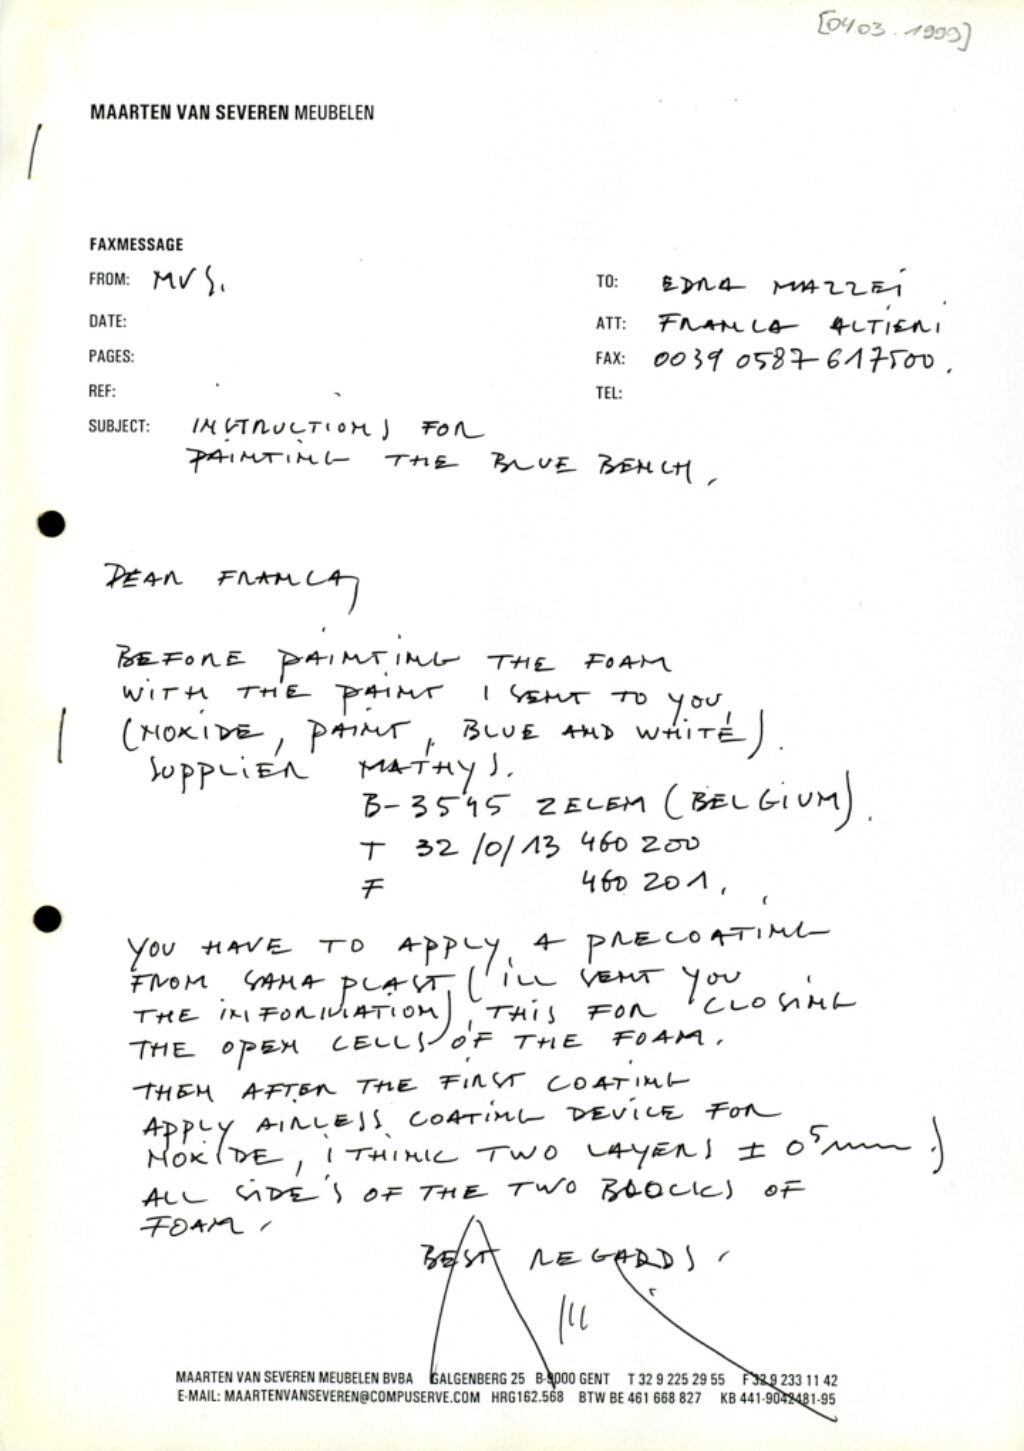 [04.03.1999]
MAARTEN VAN SEVEREN MEUBELEN
FAXMESSAGE
FROM: MVS.
TO: EDRA MAZZEI
DATE:
ATT: FRANCA ALTIERI
PAGES:
FAX: 0039 0587-617500.
REF:
TEL:
SUBJECT: INSTRUCTIONS FOR
PAINTING THE BLUE BENCH.
DEAR FRANCA,
BEFORE PAINTING THE FOAM
WITH THE PAINT I SENT TO YOU,
(NOXIDE, PAINT, BLUE AND WHITE).
SUPPLIER MATHYS.
B-3545 ZELEM (BELGIUM).
T 32/0/13 460 200
F 460 201.
YOU HAVE TO APPLY A PRECOATING
FROM SAMAPLAST (I'LL SENT YOU
THE INFORMATION), THIS FOR CLOSING
THE OPEN CELLS OF THE FOAM.
THEN AFTER THE FIRST COATING
APPLY AIRLESS COATING DEVICE FOR
NOXIDE, I THINK TWO LAYERS ± 0⁵mm.)
ALL SIDE'S OF THE TWO BLOCKS OF
FOAM.
BEST REGARDS.
MAARTEN VAN SEVEREN MEUBELEN BVBA GALGENBERG 25 B-9000 GENT T 32 9 225 29 55 F 32 9 233 11 42
E-MAIL: MAARTENVANSEVEREN@COMPUSERVE.COM HRG162.568 BTW BE 461 668 827 KB 441-9042481-95